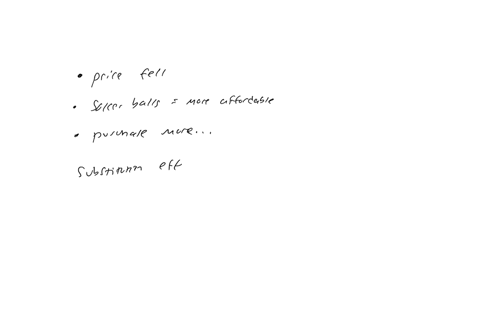 • price fell
• Soccer balls = more affordable
• purchase more...
Substitution eff